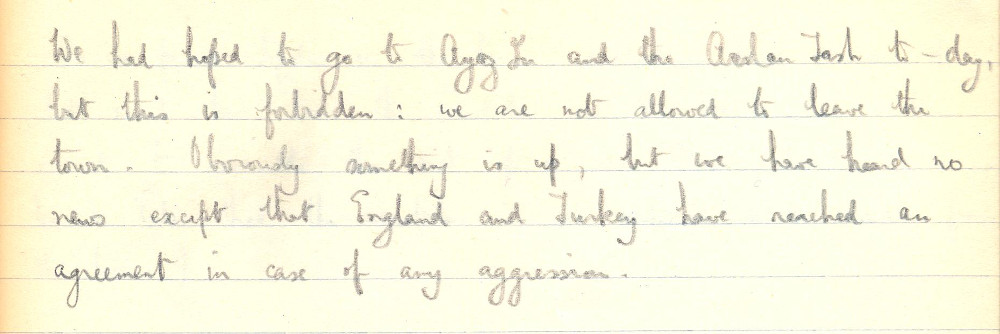 We had hoped to go to Ayaz In and the Arslan Tash to-day,
but this is forbidden : we are not allowed to leave the
town. Obviously something is up, but we have heard no
news except that England and Turkey have reached an
agreement in case of any aggression.